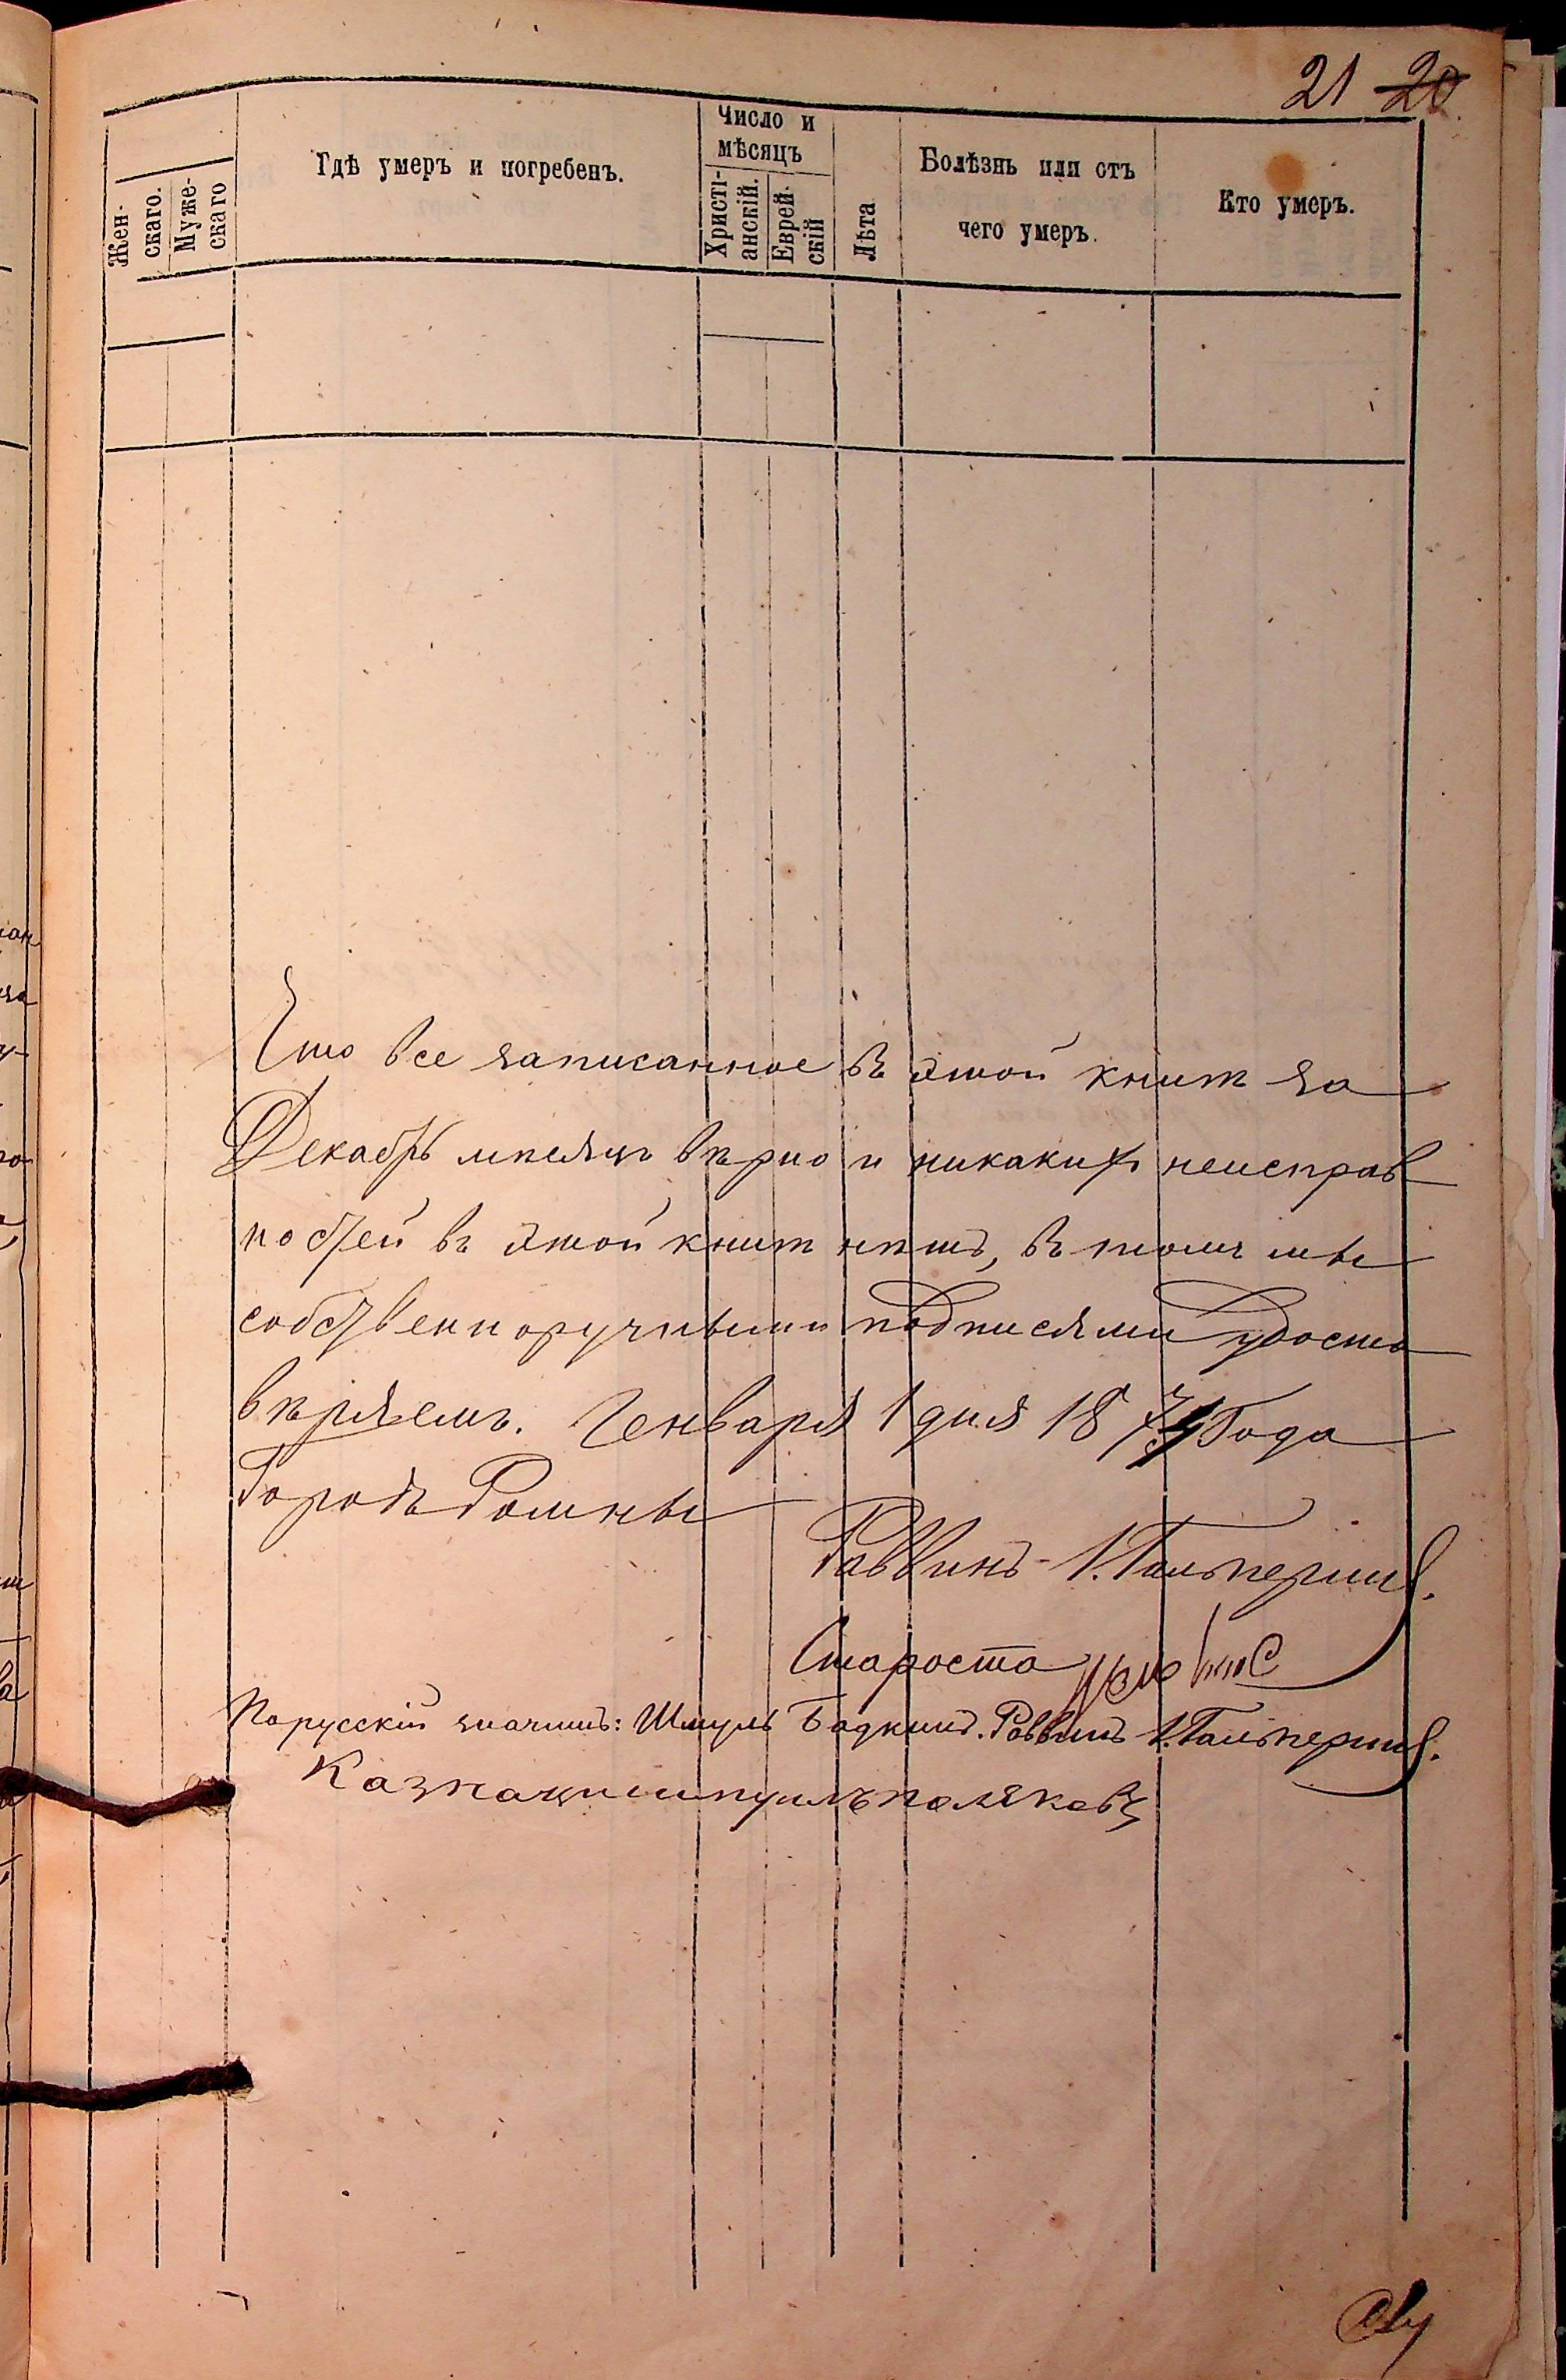 21 20
Жен-
скаго.
Муже-
скаго
Гдѣ умеръ и погребенъ.
Число и
мѣсяцъ
Христі-
анскій.
Еврей-
скій
Лѣта
Болѣзнь или отъ
чего умеръ.
Кто умеръ.
Что все записанное въ этой книгѣ за
Декабрь мѣсяцъ вѣрно и никакихъ неисправ
ностей въ этой книгѣ нѣтъ, въ томъ мы
собственноручными подписями удосто
вѣряемъ. Генваря 1 дня 1874 Года
Городъ Ромны
Раввинъ І. Гальперинъ.
Староста
Порусскій значитъ: Шмуль Бадкинъ. Раввинъ І. Гальперинъ.
Казначи поляковъ